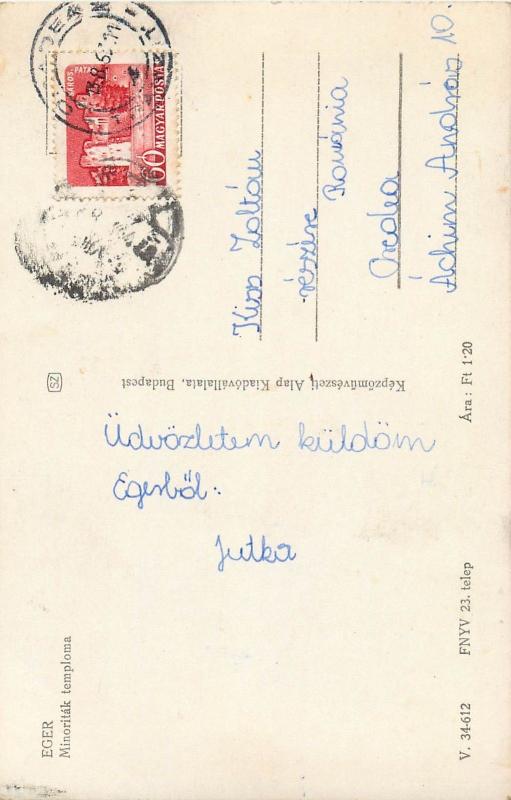 EGER
Minoriták temploma
Üdvözletem küldöm
Egerből:
Jutka
V. 34-612 FNYV 23. telep Ára: Ft 1·20
Képzőművészeti Alap Kiadóvállalata, Budapest
SZ
SÁROS-PATAK
60 MAGYAR POSTA
Kiss Zoltán
részére Románia
Oradea
Áchim András 10.